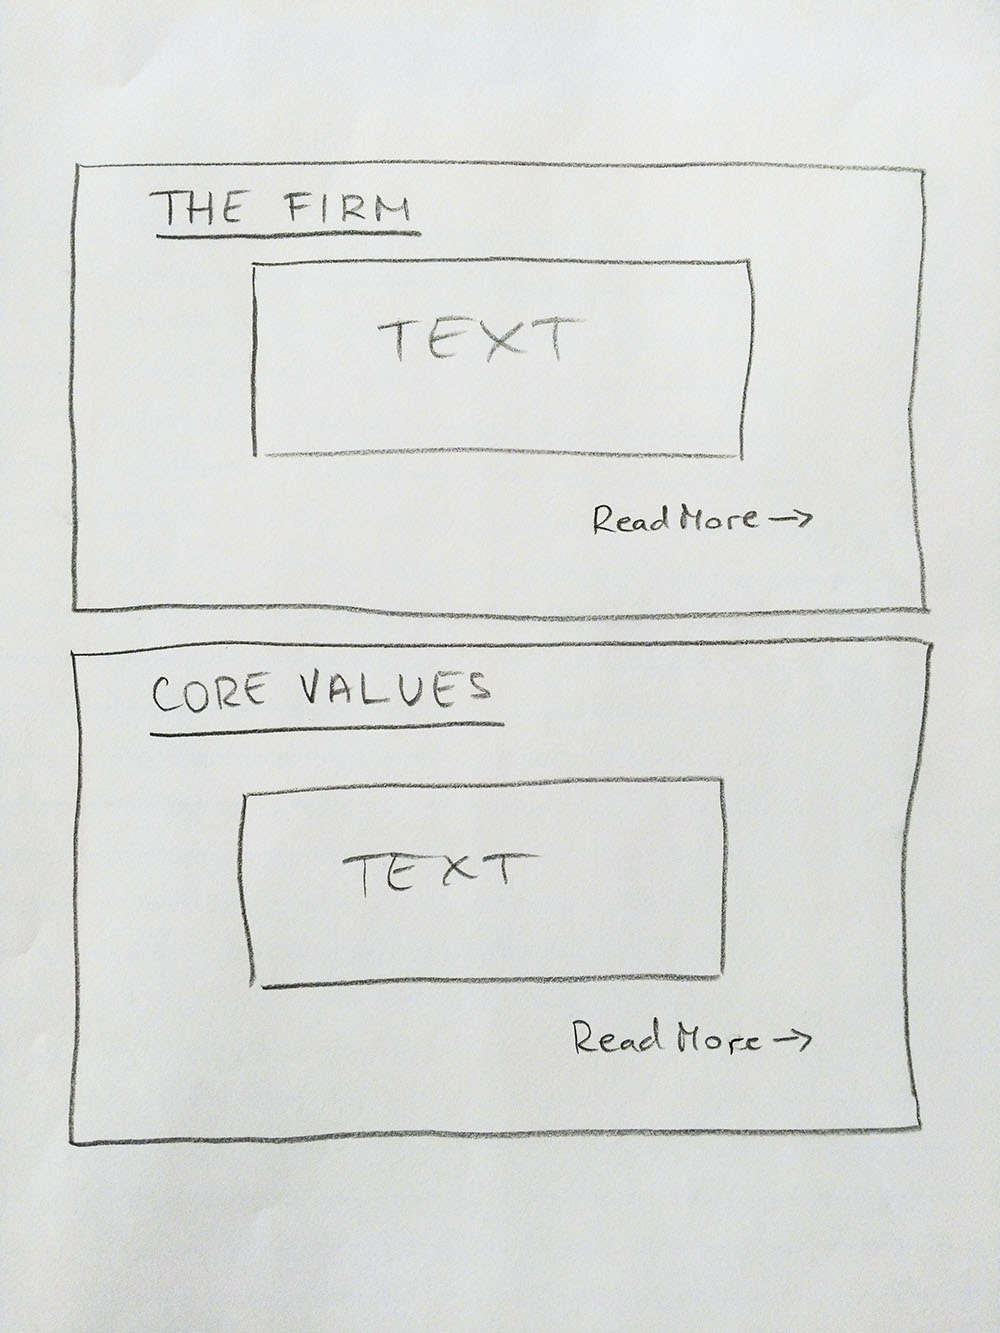 THE FIRM
TEXT
Read More →
CORE VALUES
TEXT
Read More →